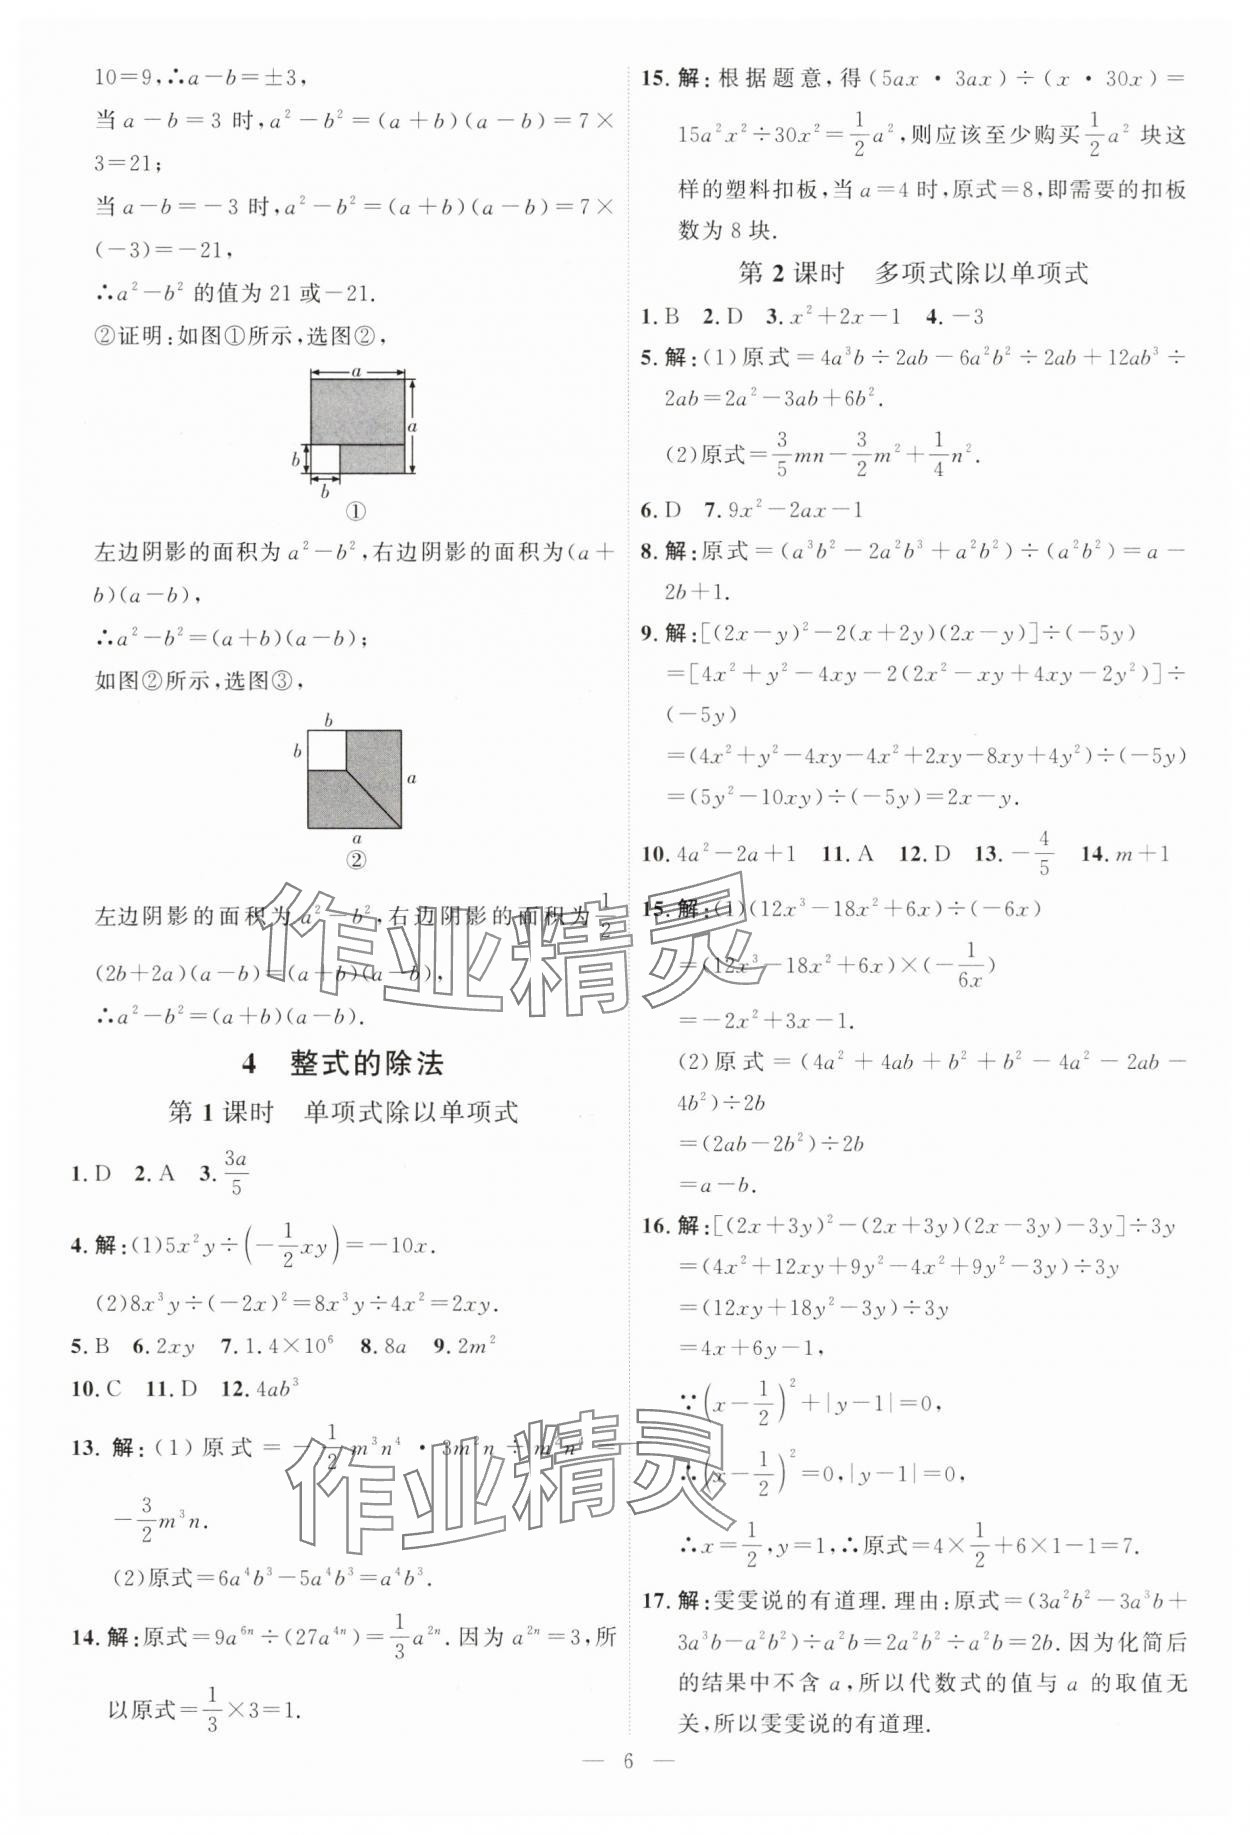 10=9,∴a-b=±3,
当 a-b=3 时,a²-b²=(a+b)(a-b)=7×
3=21;
当 a-b=-3 时,a²-b²=(a+b)(a-b)=7×
(-3)=-21,
∴a²-b² 的值为 21 或-21.
②证明:如图①所示,选图②,
a
a
b
b
①
左边阴影的面积为 a²-b²,右边阴影的面积为(a+
b)(a-b),
∴a²-b²=(a+b)(a-b);
如图②所示,选图③,
b
b
a
a
②
左边阴影的面积为 a²-b²,右边阴影的面积为 1/2
(2b+2a)(a-b)=(a+b)(a-b),
∴a²-b²=(a+b)(a-b).
4 整式的除法
第 1 课时 单项式除以单项式
1. D 2. A 3. 3a/5
4. 解:(1)5x²y÷(-1/2xy)=-10x.
(2)8x³y÷(-2x)²=8x³y÷4x²=2xy.
5. B 6. 2xy 7. 1.4×10⁶ 8. 8a 9. 2m²
10. C 11. D 12. 4ab³
13. 解:(1)原式=-1/2m³n⁴·3m²n÷m²n⁴=
-3/2m³n.
(2)原式=6a⁴b³-5a⁴b³=a⁴b³.
14. 解:原式=9a⁶ⁿ÷(27a⁴ⁿ)=1/3a²ⁿ. 因为 a²ⁿ=3,所
以原式=1/3×3=1.
15. 解:根据题意,得(5ax·3ax)÷(x·30x)=
15a²x²÷30x²=1/2a²,则应该至少购买1/2a² 块这
样的塑料扣板,当 a=4 时,原式=8,即需要的扣板
数为 8 块.
第 2 课时 多项式除以单项式
1. B 2. D 3. x²+2x-1 4. -3
5. 解:(1)原式=4a³b÷2ab-6a²b²÷2ab+12ab³÷
2ab=2a²-3ab+6b².
(2)原式=3/5mn-3/2m²+1/4n².
6. D 7. 9x²-2ax-1
8. 解:原式=(a³b²-2a²b³+a²b²)÷(a²b²)=a-
2b+1.
9. 解:[(2x-y)²-2(x+2y)(2x-y)]÷(-5y)
=[4x²+y²-4xy-2(2x²-xy+4xy-2y²)]÷
(-5y)
=(4x²+y²-4xy-4x²+2xy-8xy+4y²)÷(-5y)
=(5y²-10xy)÷(-5y)=2x-y.
10. 4a²-2a+1 11. A 12. D 13. -4/5 14. m+1
15. 解:(1)(12x³-18x²+6x)÷(-6x)
=(12x³-18x²+6x)×(-1/6x)
=-2x²+3x-1.
(2)原式=(4a²+4ab+b²+b²-4a²-2ab-
4b²)÷2b
=(2ab-2b²)÷2b
=a-b.
16. 解:[(2x+3y)²-(2x+3y)(2x-3y)-3y]÷3y
=(4x²+12xy+9y²-4x²+9y²-3y)÷3y
=(12xy+18y²-3y)÷3y
=4x+6y-1,
∵(x-1/2)²+|y-1|=0,
∴(x-1/2)²=0,|y-1|=0,
∴x=1/2,y=1,∴原式=4×1/2+6×1-1=7.
17. 解:雯雯说的有道理. 理由:原式=(3a²b²-3a³b+
3a³b-a²b²)÷a²b=2a²b²÷a²b=2b. 因为化简后
的结果中不含 a,所以代数式的值与 a 的取值无
关,所以雯雯说的有道理.
— 6 —
作业精灵
作业精灵